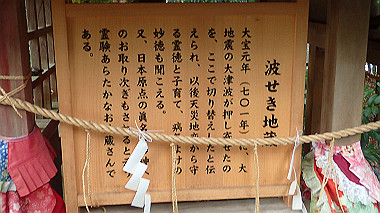 波せき地蔵
大宝元年(七〇一年)に、大
地震の大津波が押し寄せたの
を、ここで切り替えしたと伝
えられ、以後天災地変から守
る霊徳と子育て、病よけの
妙徳も聞こえる。
又、日本原点の眞名
のお取り次ぎもさると
霊験あらたかなお地蔵さんで
ある。